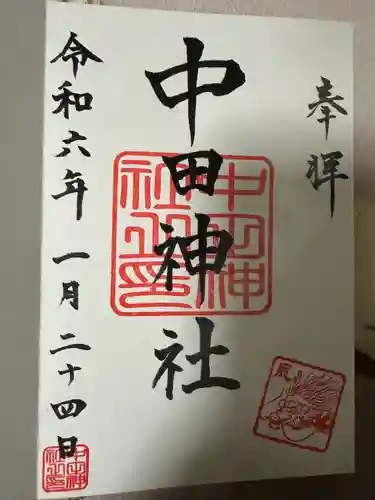 奉拝
中田神社
令和六年一月二十四日
中田神
社之印
辰